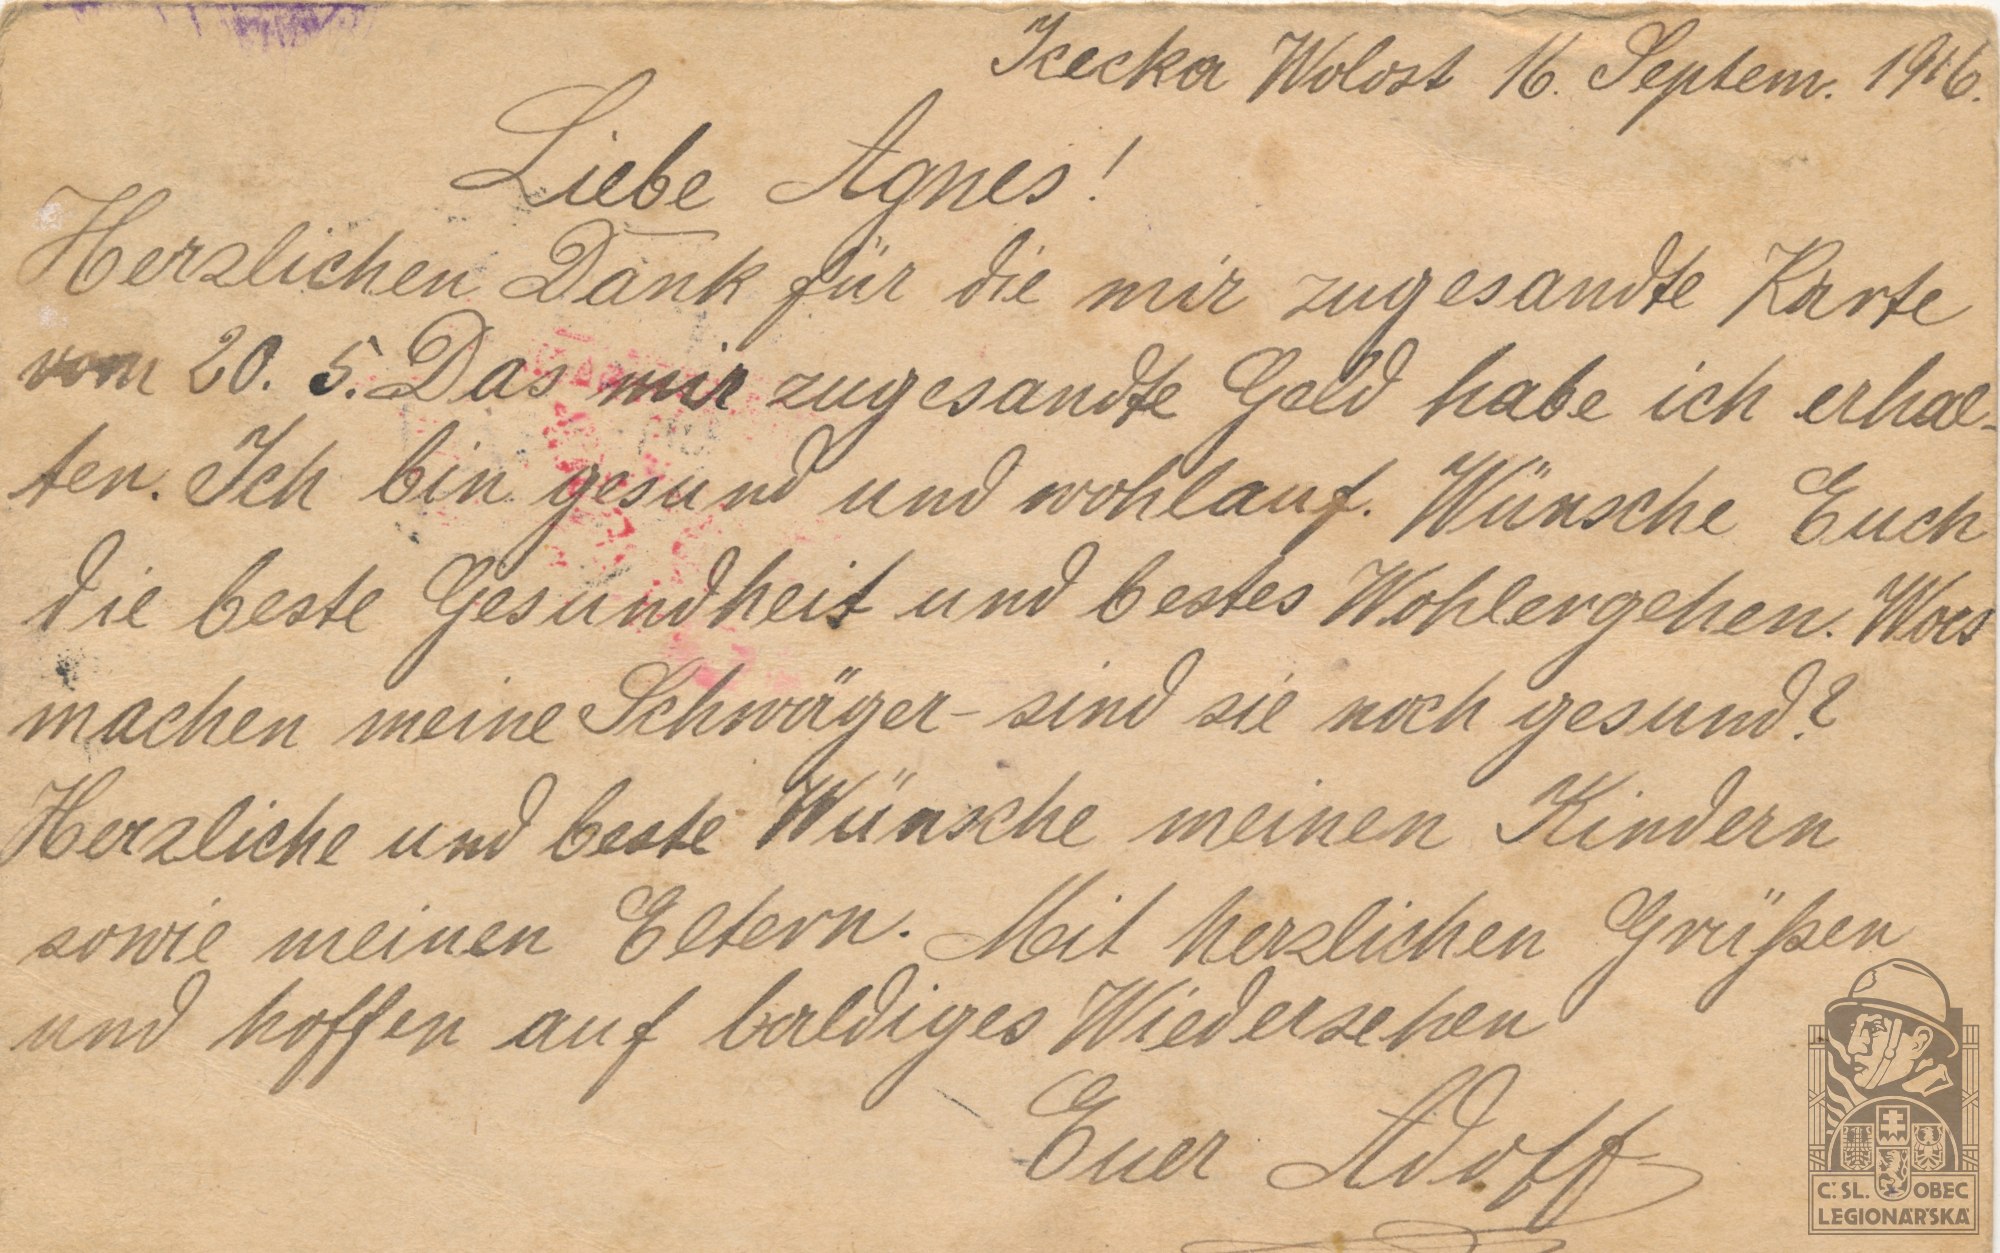 Icecka Wolost 16. Septem. 1916.
Liebe Agnes!
Herzlichen Dank für die mir zugesandte Karte
vom 20. 5. Das mir zugesandte Geld habe ich erhal-
ten. Ich bin gesund und wohlauf. Wünsche Euch
die beste Gesundheit und bestes Wohlergehen. Was
machen meine Schwäger - sind sie noch gesund?
Herzliche und beste Wünsche meinen Kindern
sowie meinen Eltern. Mit herzlichen Grüßen
und hoffen auf baldiges Wiedersehen
Euer Adolf
Č. SL. OBEC
LEGIONÁŘSKÁ